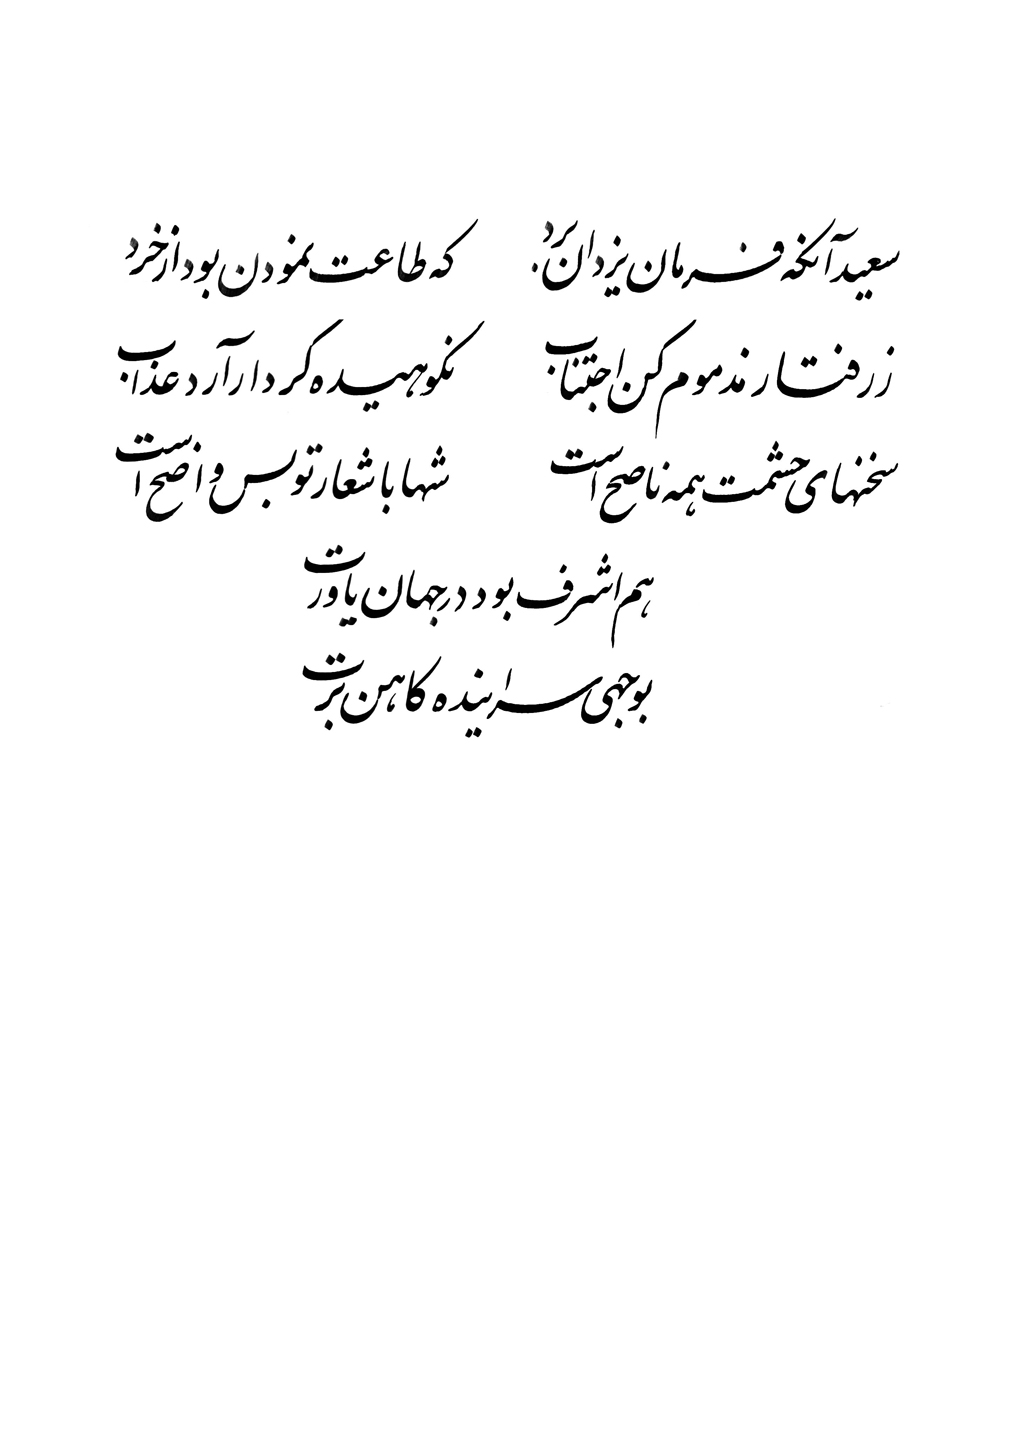 سعید آنکه فرمان یزدان برد که طاعت نمودن بود از خرد
ز رفتار مذموم کن اجتناب نکوهیده کردار آرد عذاب
سخنهای حشمت همه ناصح است شها با شعار تو بس واضح است
هم اشرف بود در جهان یاورت
بوجهی سراینده کاهن برت